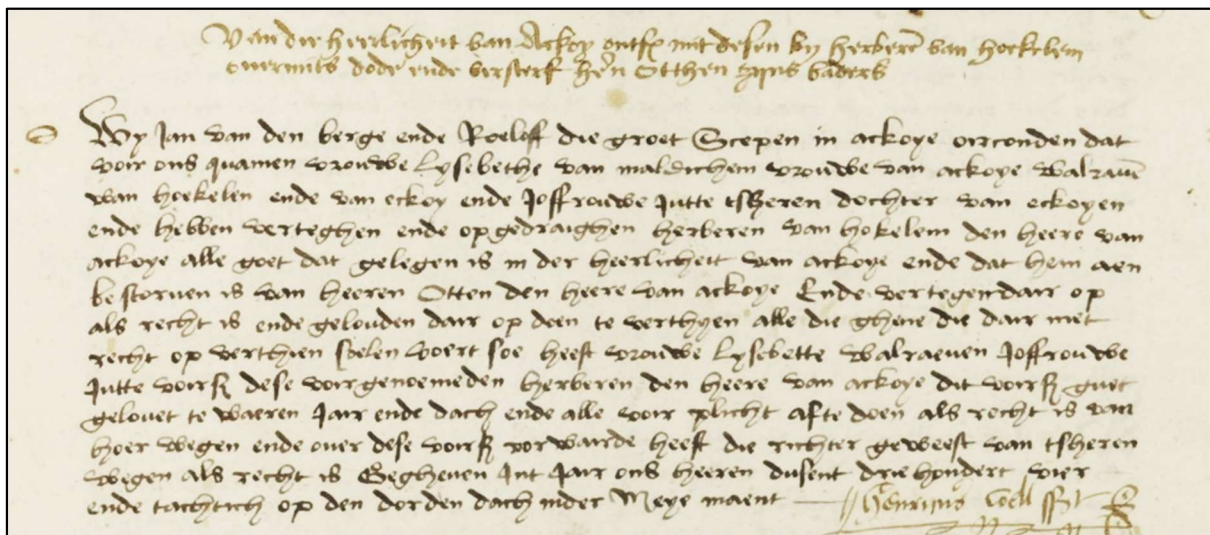 Van die heerlicheit van Ackoy ontfx mit desen by Herberen van Hoekelem
overmits dode ende versterf hern Otthen zijns vaders
Wy Jan van den berge ende Roeloff die groet Scepen in ackoye oirconden dat
voir ons quamen vrouwe Lysebethe van maldichem vrouwe van ackoye walraven
van hoekelen ende van eckoy ende Joffrouwe Jutte tsheren dochter van eckoyen
ende hebben verteghen ende opgedraighen herberen van hokelem den heere van
ackoye alle goet dat gelegen is in der heerlicheit van ackoye ende dat hem aen
bestorven is van heeren Otten den heere van ackoye Ende vertegen dair op
als recht is ende gelouden dair op doen te verthyen alle die ghene die dair met
recht op verthien soelen voert soe heeft vrouwe Lysebette walraeven Joffrouwe
Jutte voirs dese voirgenoemeden herberen den heere van ackoye dit voirs guet
gelouet te waeren Jair ende dach ende alle voir plicht afte doen als recht is van
hoer wegen ende over dese voirs vorwairde heeft die richter geweest van tsheren
wegen als recht is Gegheven Int Jair ons heeren dusent driehondert vier
ende tachtich op den dorden dach inder Meye maent